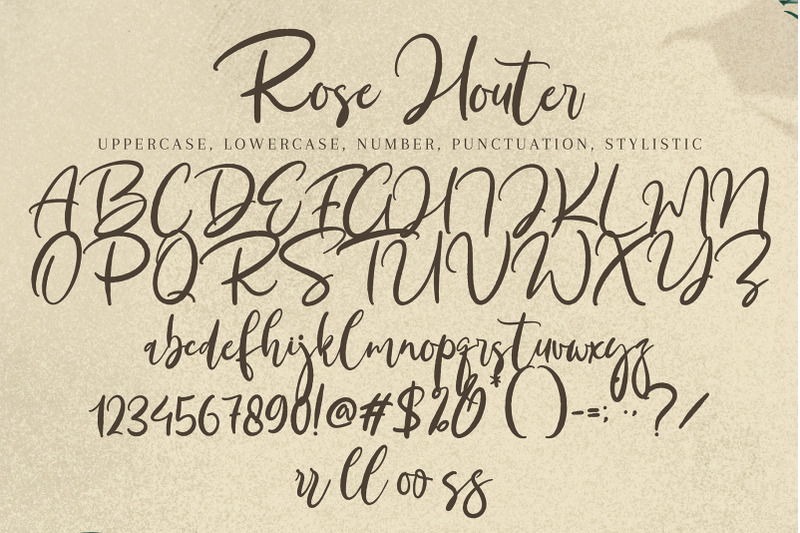 Rose Houter
UPPERCASE, LOWERCASE, NUMBER, PUNCTUATION, STYLISTIC
ABCDEFGHIJKLMN
OPQRSTUVWXYZ
abcdefghijklmnopqrstuvwxyz
1234567890!@#$%&*()-=;:?/
rr ll oo ss